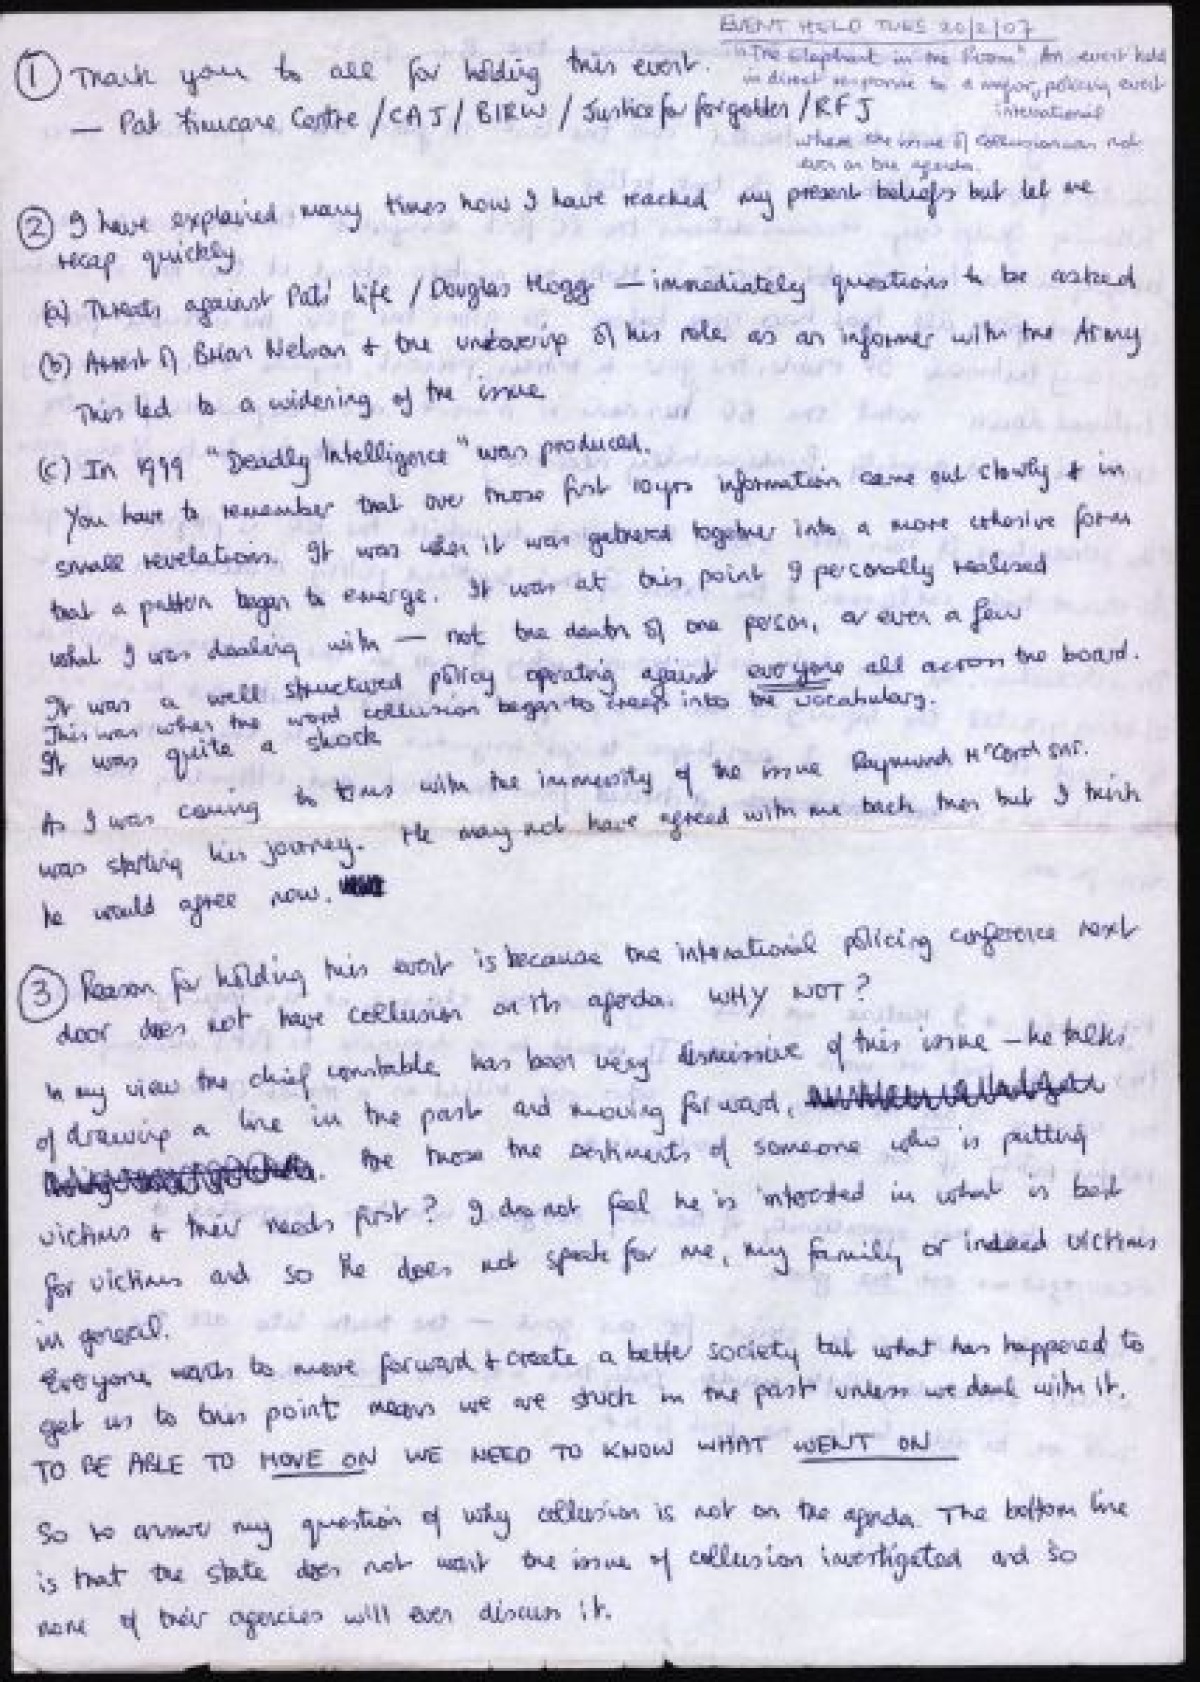 EVENT HELD TUES 20/2/07
"The Elephant in the Room" An event held
in direct response to a major, policing event
international
where the issue of collusion was not
even on the agenda.
① Thank you to all for holding this event.
— Pat Finucane Centre / CAJ / BIRW / Justice for forgotten / RFJ
② I have explained many times how I have reached my present beliefs but let me
recap quickly
(a) Threats against Pats' life / Douglas Hogg — immediately questions to be asked
(b) Arrest of Brian Nelson + the uncovering of his role as an informer with the Army
This led to a widening of the issue
(c) In 1999 "Deadly Intelligence" was produced.
You have to remember that over those first 10yrs information came out slowly & in
small revelations. It was when it was gathered together into a more cohesive form
that a pattern began to emerge. It was at this point I personally realised
what I was dealing with — not the death of one person, or even a few
It was a well structured policy operating against everyone all across the board.
This was when the word collusion began to creep into the vocabulary.
It was quite a shock
As I was coming to terms with the immensity of the issue Raymond McCord snr.
was starting his journey. He may not have agreed with me back then but I think
he would agree now.
③ Reason for holding this event is because the international policing conference next
door does not have collusion on its agenda. WHY NOT?
In my view the chief constable has been very dismissive of this issue — he talks
of drawing a line in the past and moving forward,
Are those the sentiments of someone who is putting
victims & their needs first? I do not feel he is interested in what is best
for victims and so he does not speak for me, my family or indeed victims
in general.
Everyone wants to move forward & create a better society but what has happened to
get us to this point means we are stuck in the past unless we deal with it.
TO BE ABLE TO MOVE ON WE NEED TO KNOW WHAT WENT ON
So to answer my question of why collusion is not on the agenda. The bottom line
is that the state does not want the issue of collusion investigated and so
none of their agencies will ever discuss it.